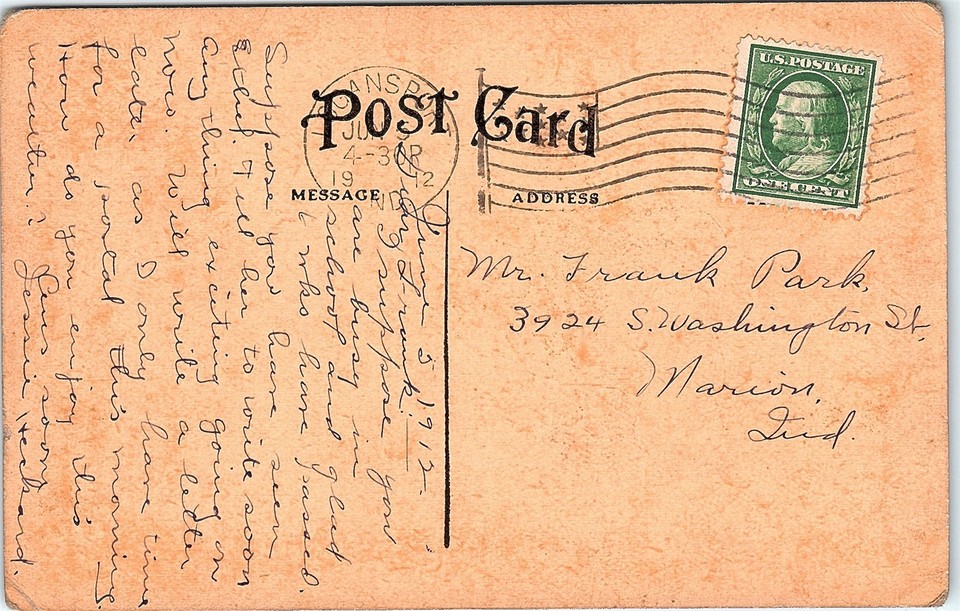 POST CARD
U.S. POSTAGE
ONE CENT
LOGANSPORT
JUN
4-30P
19 12
IND.
MESSAGE
ADDRESS
June 5 1912
Dear Frank:—
I suppose you
are busy in
school and glad
t who have passed.
Suppose you have seen
Ethel. Tell her to write soon
Any thing exciting going on
now. Will write a letter
later as I only have time
for a postal this morning.
How do you enjoy this
weather? Yours soon,
Jessie Heckard.
Mr. Frank Park,
3924 S. Washington St.,
Marion,
Ind.